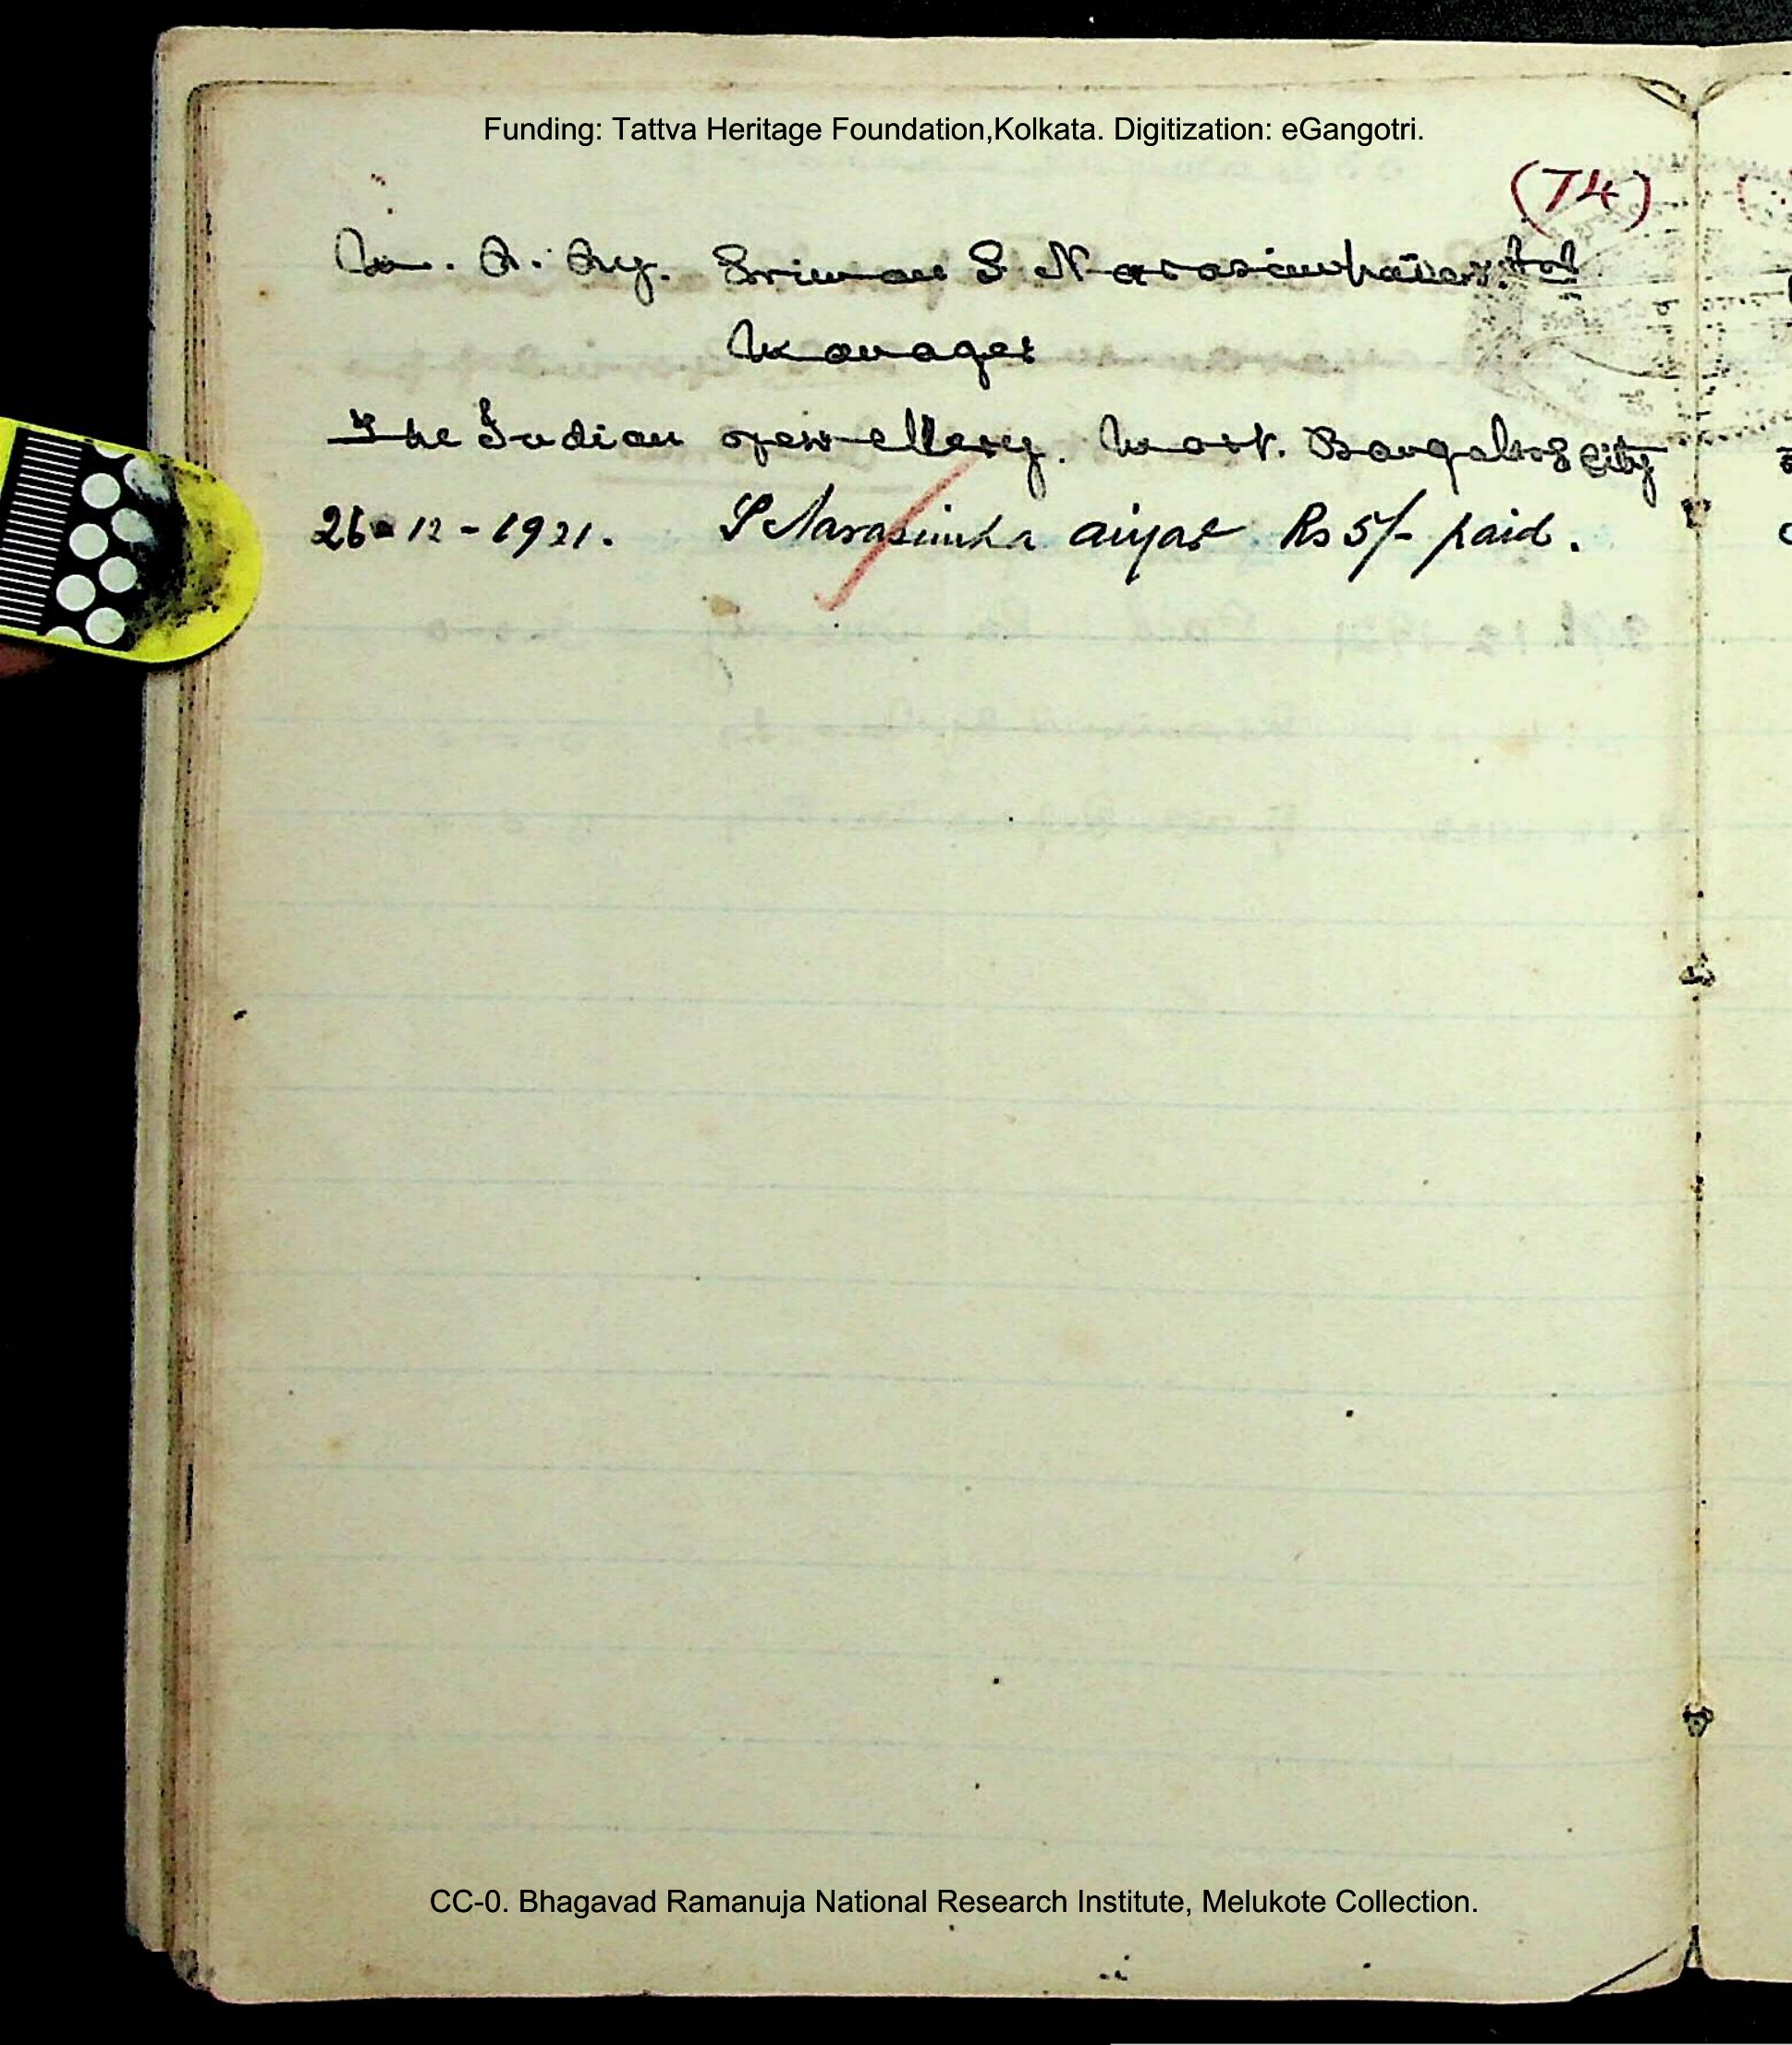 Funding: Tattva Heritage Foundation,Kolkata. Digitization: eGangotri.
(74)
M. R. Ry. Sriman S. Narasimhaier
Manager
The Indian Jewellery. Mart. Bangalore City
26-12-1921. S Narasimha aiyar Rs 5/- paid.
CC-0. Bhagavad Ramanuja National Research Institute, Melukote Collection.